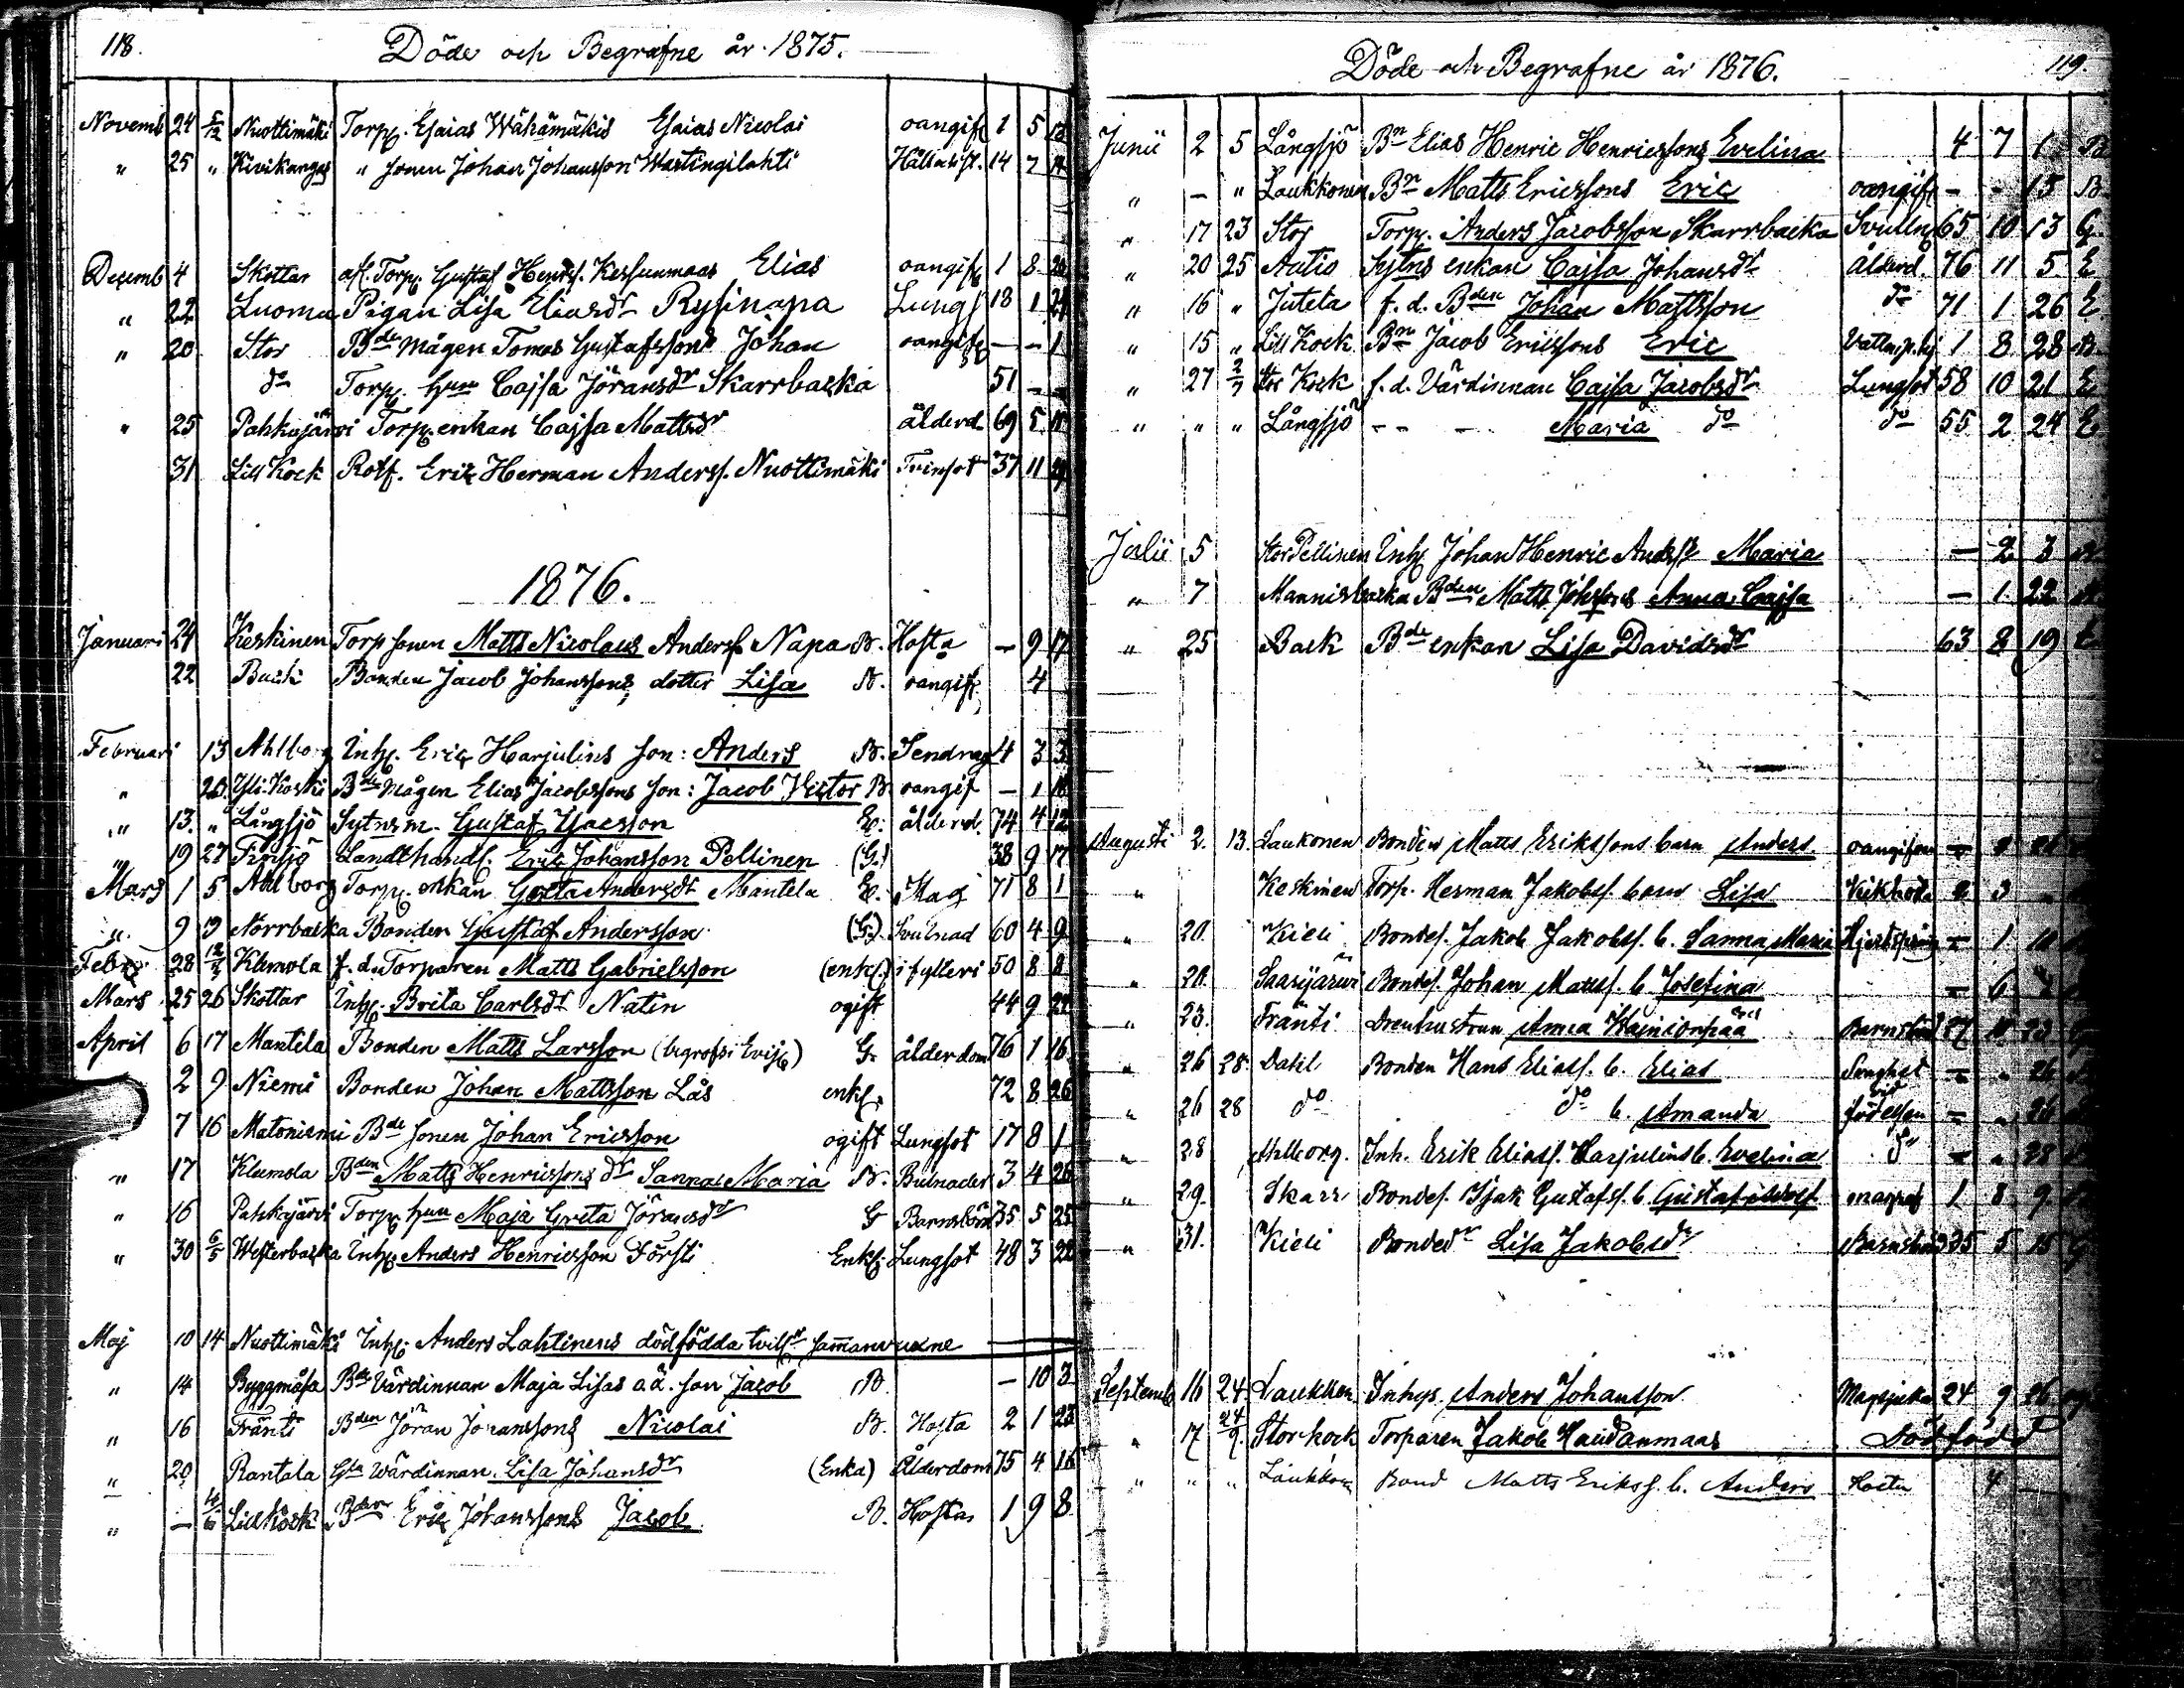 118. Döde och Begrafne år 1875.
Novemb 24 5/12 Nuottimäki Torp. Esaias Wähämäkis Esaias Nicolai oangif 1 5
" 25 " Kivikangas " sonen Johan Johansson Wartingilahti 14 7
Decemb 4 Skottar afl. Torp. Gustaf Henrs. Kersunmaas Elias oangif 1 8
" 22 Luoma Pigan Lisa Eliasdr Rysinapa Lungs 18 1 24
" 20 Stor Bde mågen Tomas Gustafssons Johan oangif — — 1
do Torp. hun Cajsa Jöransdr Skarrbacka 51 — —
" 25 Pahkajärvi Torp. enkan Cajsa Mattsdr ålderd. 69 5
31 Lill Kock Rotf. Eric Herman Anderss. Nuottimäki Tvinsot 37 11
1876.
Januari 24 Keskinen Torp sonen Matts Nicolaus Anderss Napa B. Hosta — 9 17
22 Back Bonden Jacob Johanssons dotter Lisa B. oangif 4
Februari 13 Ahlborg Inh. Eric Harjulins son: Anders B. Sendrag 4 3 3
" Yli-Koski Bde Mågen Elias Jacobssons son: Jacob Victor B. oangif — 1 18
" 13. " Långsjö Sytnsm. Gustaf Ijacsson E. ålderd. 74 4 12
" 19 27 Långsjö Landthandl. Eric Johansson Pellinen (G.) 38 9 17
Mars 1 5 Ahlborg Torp. enkan Greta Andersdr Mantela E. Mag 71 8 1
" 9 19 Norrbacka Bonden Gustaf Andersson (G.) Svulnad 60 4 9
Febr 28 12/3 Klemola f. d. Torparen Matts Gabrielsson (enkl.) i fylleri 50 8 8
Mars 25 26 Skottar Inh. Brita Carlsdr Natin ogift 44 9 22
April 6 17 Mantila Bonden Matts Larsson (begrafs i Evijs) G. ålderdom 76 1 16
2 9 Niemi Bonden Johan Mattsson Lås enkl. 72 8 26
7 16 Matoniemi Bde sonen Johan Ericsson ogift Lungsot 17 8 1
" 17 Klemola Bden Matts Henricssons dr Sanna Maria B. Bulnader 3 4 26
" 16 Pahkajärvi Torp. hun Maja Greta Jöransdr G Barnsbörd 35 5 25
" 30 6/5 Westerbacka Inh. Anders Henricsson Försti Enkl. Lungsot 48 3 22
Maj 10 14 Nuottimäki Inh. Anders Lahtinens dödfödda tvill. sammanvuxne
" 14 Byggmåsa Bde Värdinnan Maja Lisas o.ä. son Jacob B. — 10 3
" 16 Fränti Bden Jöran Jöranssons Nicolai B. Hosta 2 1 23
" 20 Rantala Gla Wärdinnan Lisa Johansdr (Enka) Ålderdom 75 4 16
" — 4/6 Lillkock Bden Eric Johanssons Jacob B. Hosta 1 9 8
Döde och Begrafne år 1876. 119.
Junii 2 5 Långsjö Bn Elias Henric Henricssons Evelina 4 7 1 B
" — " Laukkonen Bn Matts Ericssons Eric oangif — — 15 B
" 17 23 Stor Torp. Anders Jacobsson Skarrbacka Svulln 65 10 13 G.
" 20 25 Autio Sytns enkan Cajsa Johansdr ålderd. 76 11 5 E
" 16 " Jutela f. d. Bden Johan Mattsson do 71 1 26 E.
" 15 " Lill Kock Bn Jacob Ericssons Eric 1 8 28 B
" 27 2/7 Stor Kock f. d. Värdinnan Cajsa Jacobsdr Lungsot 58 10 21 E
" " " Långsjö - - - Maria do do 55 2 24 E.
Julii 5 Stor Pellinen Inh. Johan Henric Anderss Maria — 2 3
" 7 Mannisbacka Bden Matts Johssons Anna Cajsa — 1 22
" 25 Back Bde enkan Lisa Davidsdr 63 8 19 E
Augusti 2. 13. Laukonen Bonden Matts Erikssons barn Anders oangifven —
" Keskinen Torp. Herman Jakobss. barn Lisa Kikhosta 2 3
" 20. Kieli Bondes. Jakob Jakobss. b. Sanna Maria — 1
" 20. Saarijärvi Bondes. Johan Matss. b. Josefina — 6
" 23. Fränti Drenhustrun Anna Kainionpää Barnsbörd
" 26 28. Dahl Bonden Hans Eliass. b. Elias Svaghet — " 26
" 26 28 do do b. Amanda vid födelsen — " 26
" 28 Ahlborg. Inh. Erik Eliass. Harjulins b. Evelina do — " 28
" 29. Skarr Bondes. Isak Gustafss. b. Gustaf Adolf 1 8 9
" 31. Kieli Bondedr Lisa Jakobsdr Barnsbörd 35 5 15 G
Septemb 16 24 Laukkon Inhys. Anders Johansson Magsjuka 24 9 26
" 17 24/9. Storkock Torparen Jakob Haudanmaas Dödfödd
" " " Laukkon Bond Matts Erikss. b. Anders Hosta 4 —